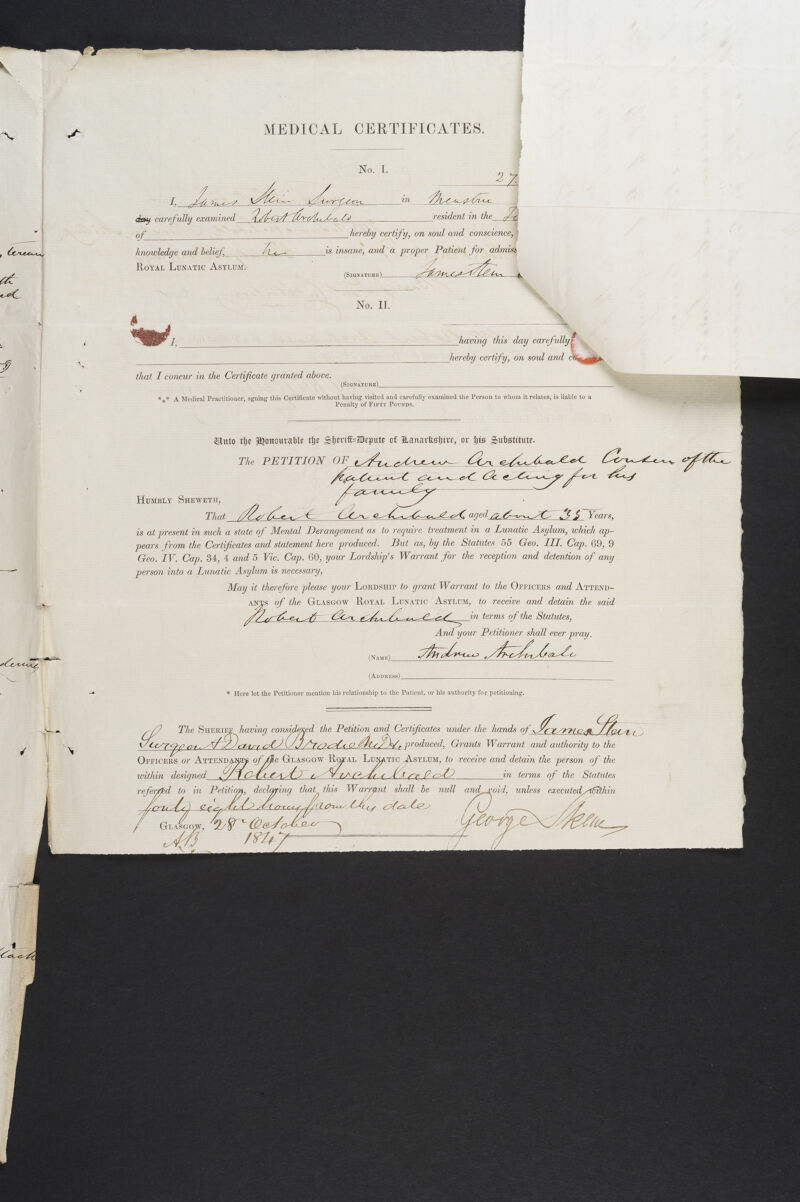 MEDICAL CERTIFICATES.
No. I.
27
I, James Stein Surgeon in Menstrie
day carefully examined Robert Archibald resident in the
of hereby certify, on soul and conscience,
knowledge and belief, he is insane, and a proper Patient for admiss
ROYAL LUNATIC ASYLUM.
(SIGNATURE) James Stein
No. II.
I, having this day carefully
hereby certify, on soul and co
that I concur in the Certificate granted above.
(SIGNATURE)
*** A Medical Practitioner, signing this Certificate without having visited and carefully examined the Person to whom it relates, is liable to a
Penalty of FIFTY POUNDS.
Unto the Honourable the Sheriff=Depute of Lanarkshire, or his Substitute.
The PETITION OF Andrew Archibald Cousin of the
patient and acting for his
family
HUMBLY SHEWETH,
That Robert Archibald aged about 35 Years,
is at present in such a state of Mental Derangement as to require treatment in a Lunatic Asylum, which ap-
pears from the Certificates and statement here produced. But as, by the Statutes 55 Geo. III. Cap. 69, 9
Geo. IV. Cap. 34, 4 and 5 Vic. Cap. 60, your Lordship's Warrant for the reception and detention of any
person into a Lunatic Asylum is necessary,
May it therefore please your LORDSHIP to grant Warrant to the OFFICERS and ATTEND-
ANTS of the GLASGOW ROYAL LUNATIC ASYLUM, to receive and detain the said
Robert Archibald in terms of the Statutes,
And your Petitioner shall ever pray.
(NAME) Andrew Archibald
(ADDRESS)
* Here let the Petitioner mention his relationship to the Patient, or his authority for petitioning.
The SHERIFF having considered the Petition and Certificates under the hands of James Stein
Surgeon & David Brodie M.D. produced, Grants Warrant and authority to the
OFFICERS or ATTENDANTS of the GLASGOW ROYAL LUNATIC ASYLUM, to receive and detain the person of the
within designed Robert Archibald in terms of the Statutes
referred to in Petition, declaring that this Warrant shall be null and void, unless executed within
forty eight hours from this date
GLASGOW, 28 October George Skene
AB 1847